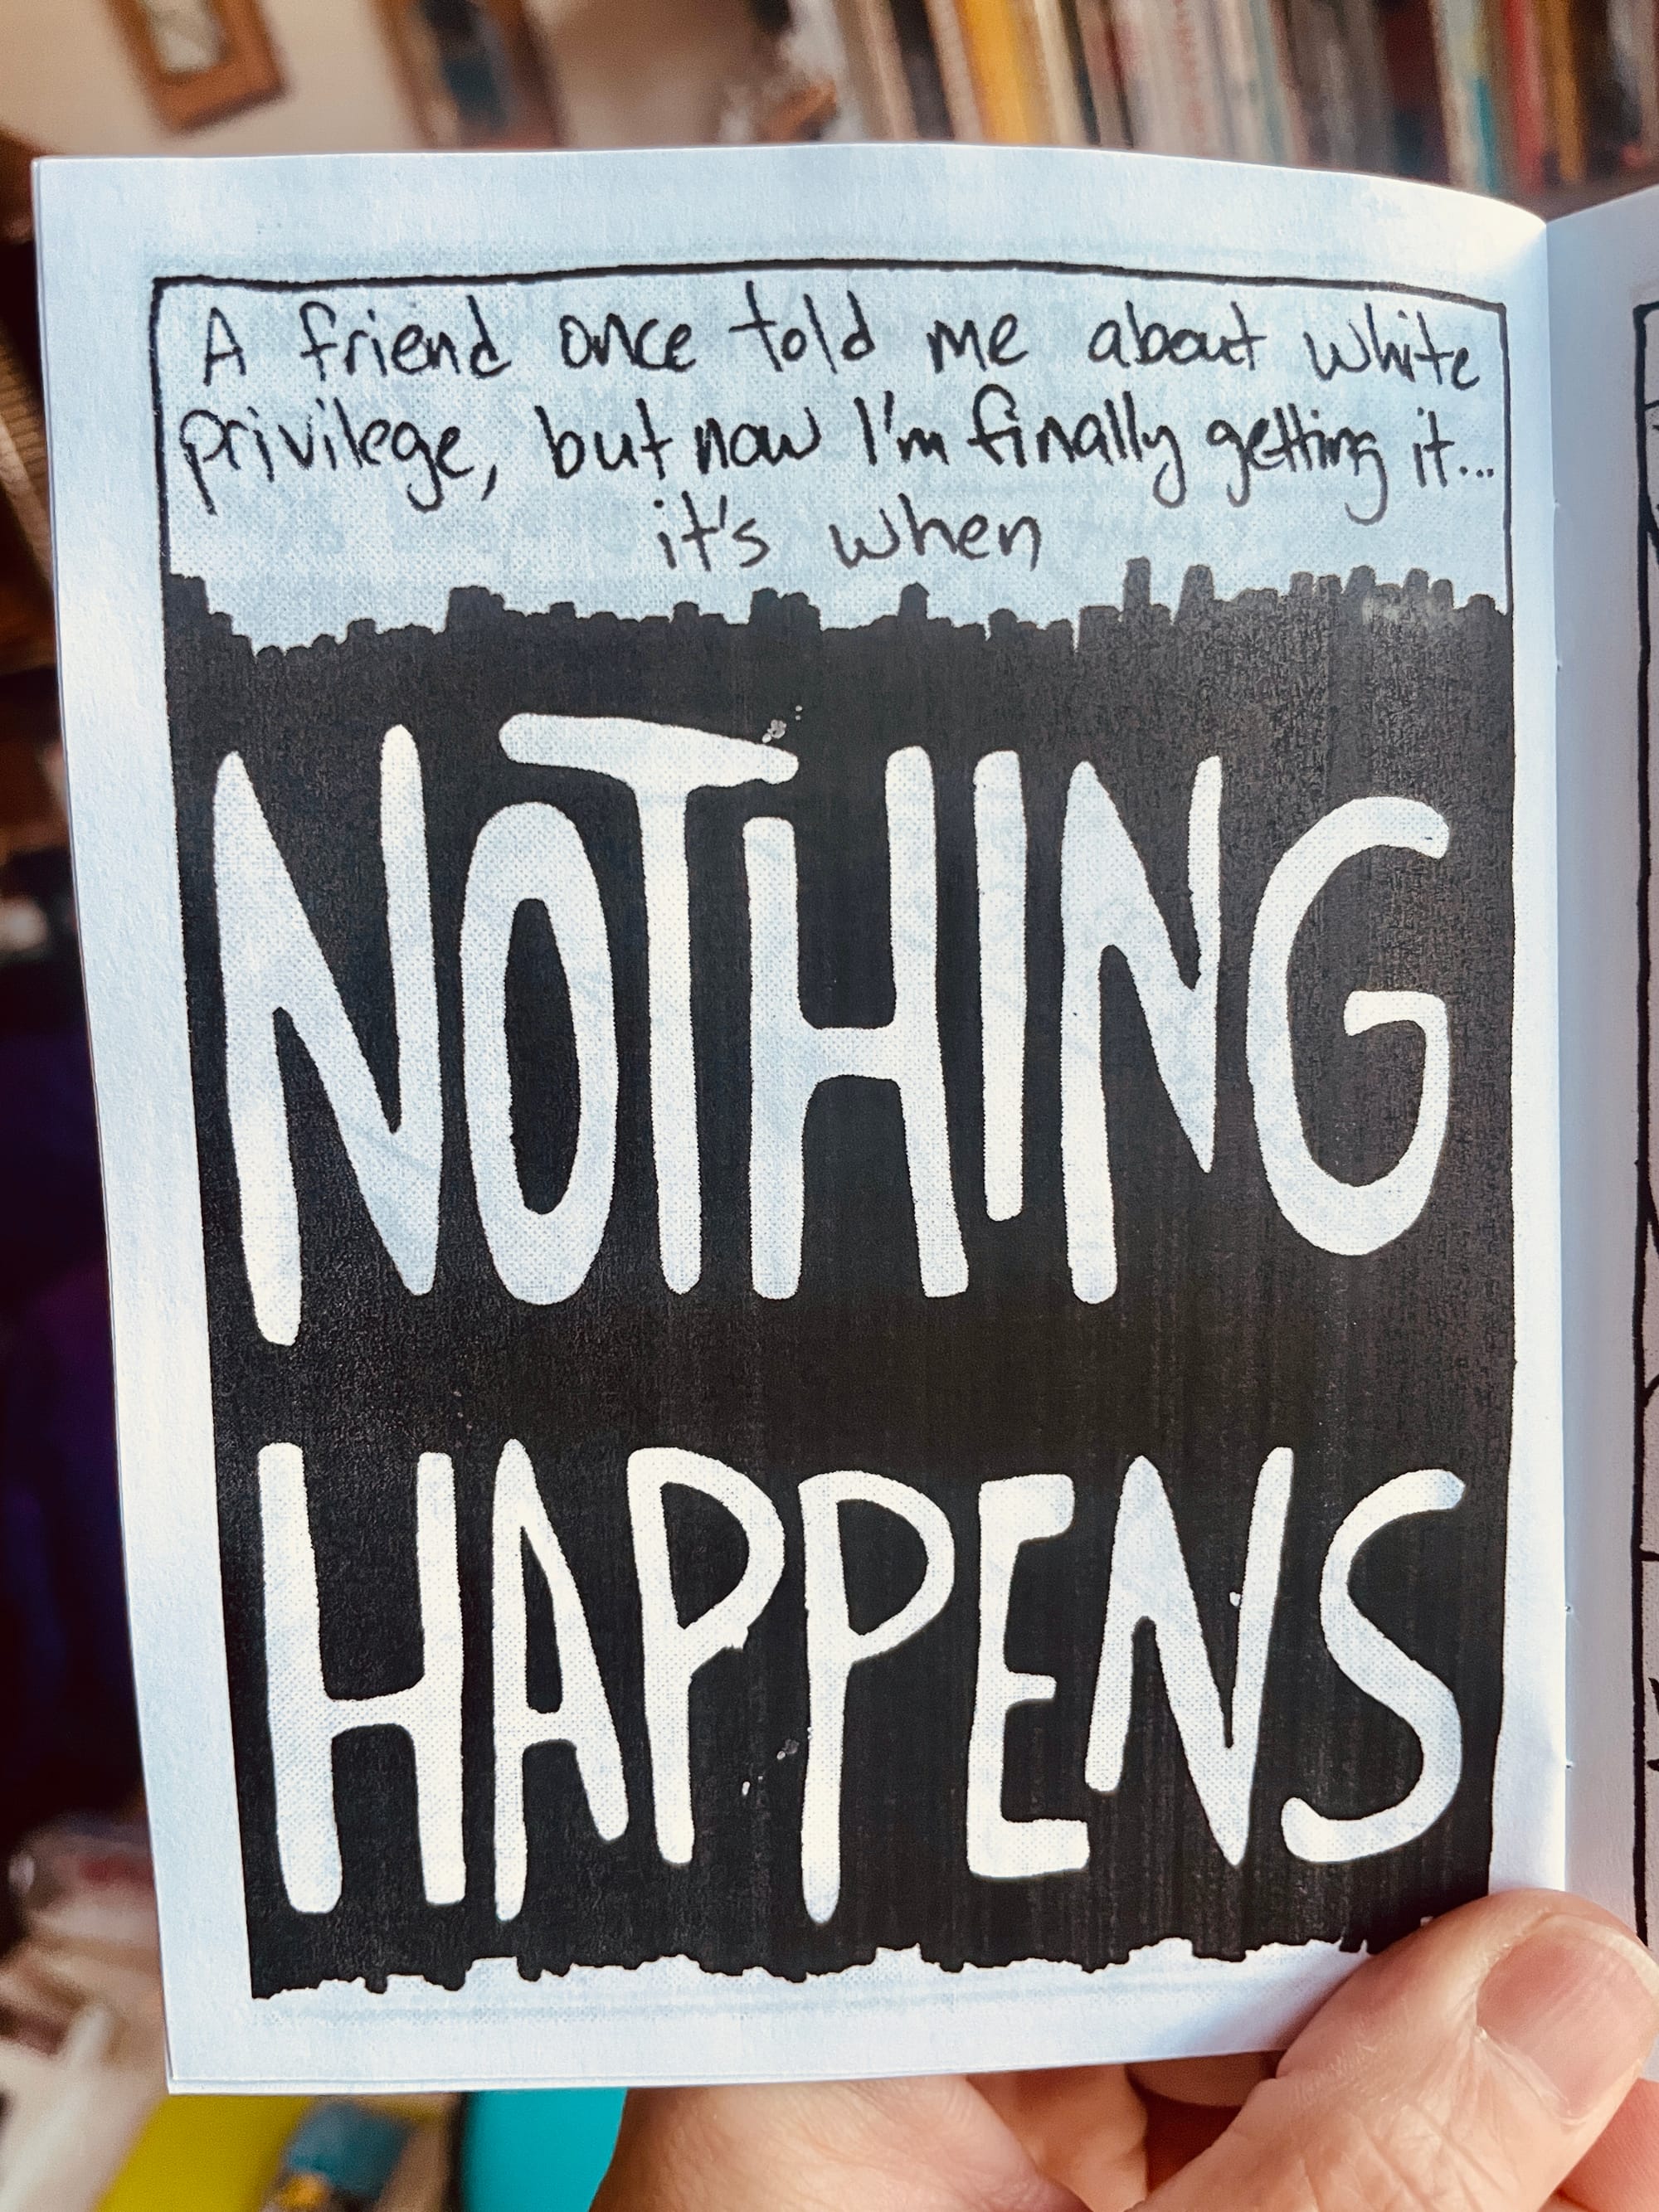 A friend once told me about white
privilege, but now I'm finally getting it...
it's when
NOTHING
HAPPENS